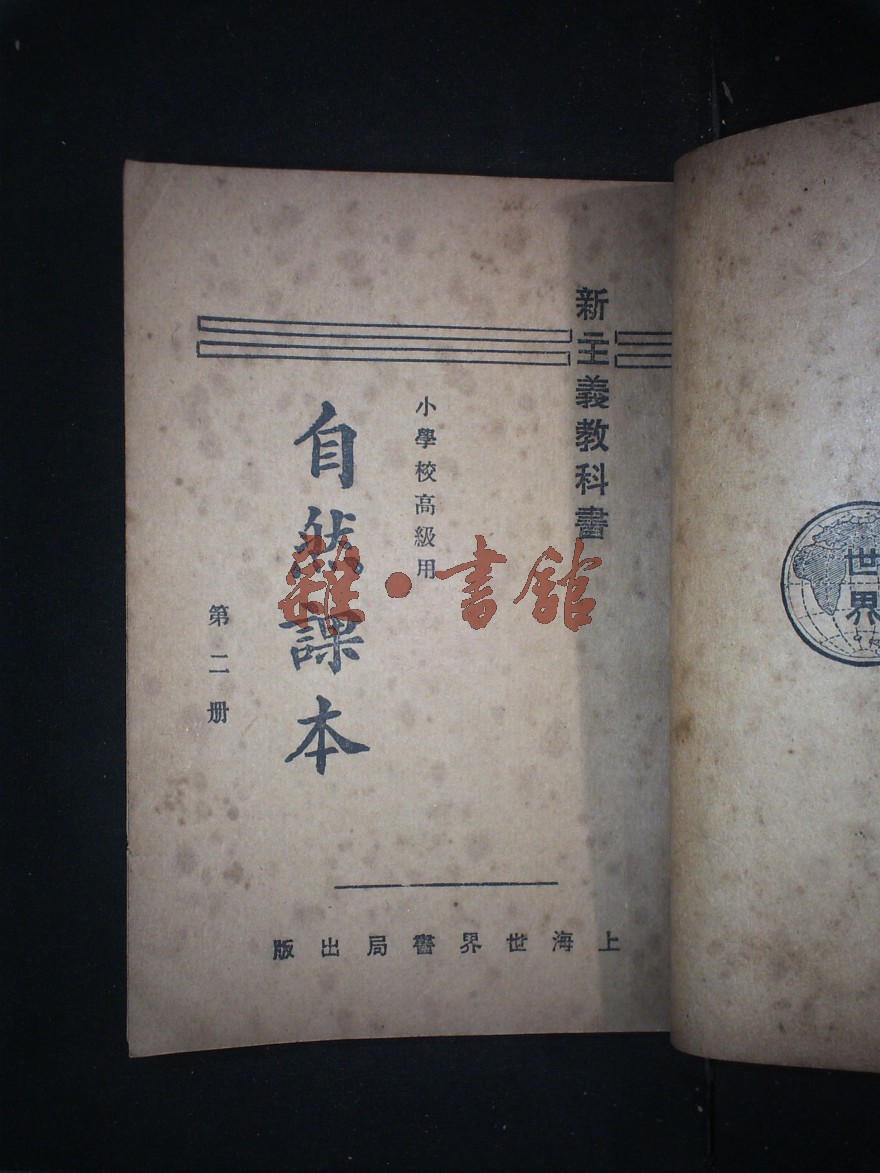 新主義教科書
小學校高級用
自然課本
第二册
上海世界書局出版
雜·書館
世界